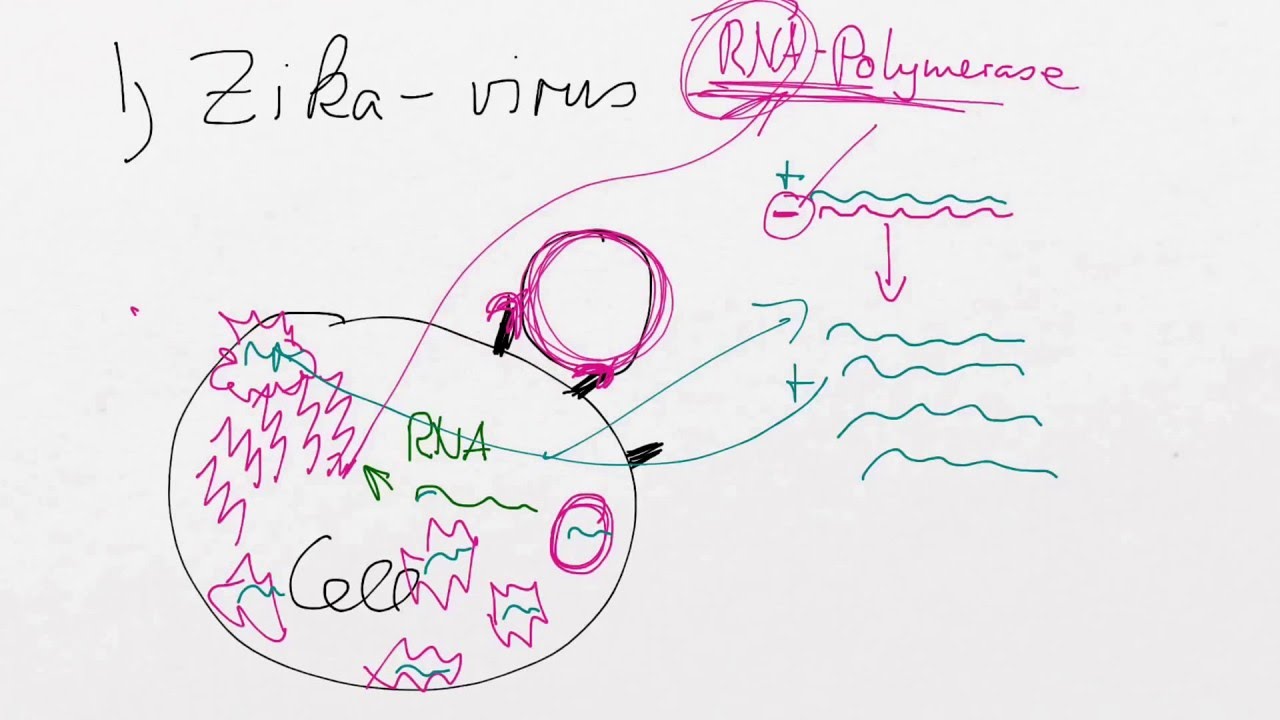 1) Zika-virus
RNA-Polymerase
+
-
+
RNA
Cell